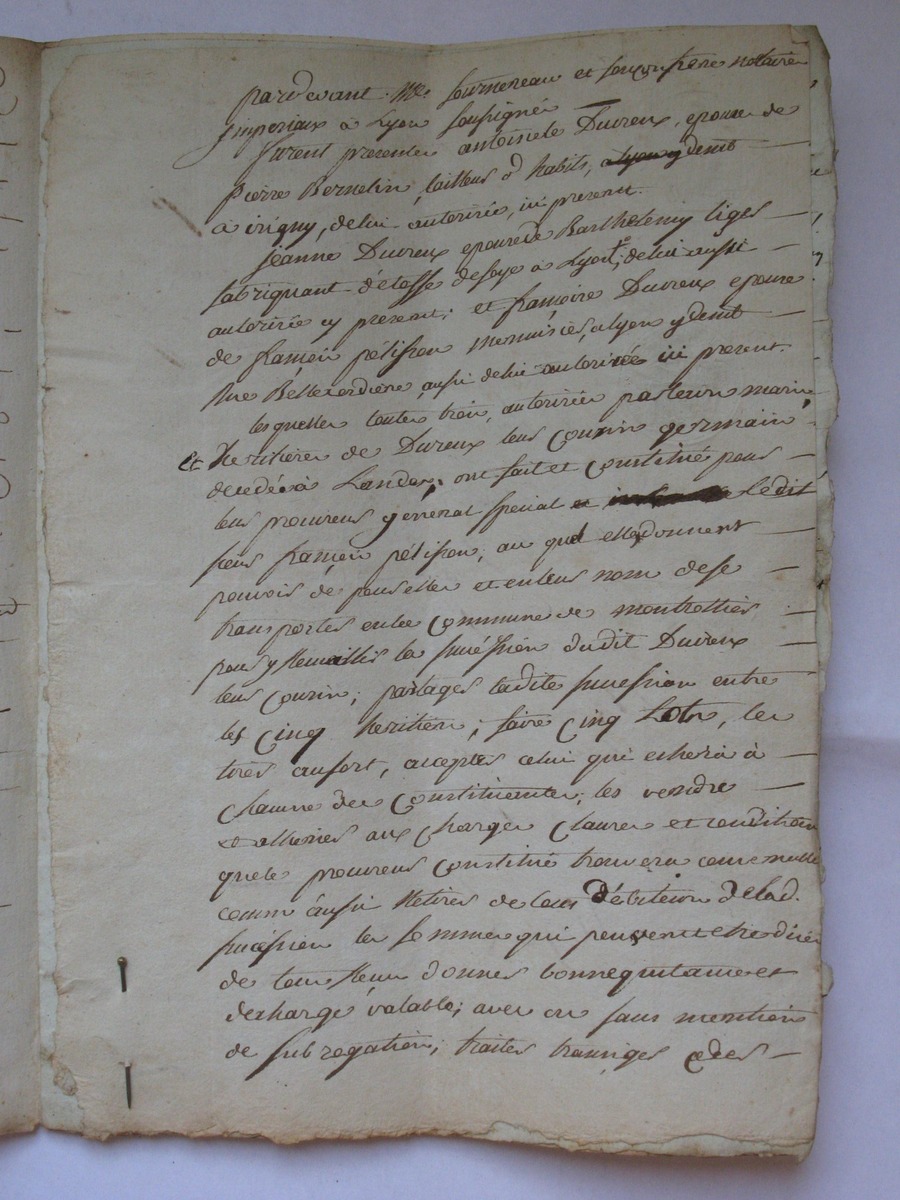 pardevant Me fournereau et son confrere notaire
imperiaux a Lyon soussignés
furent presentes antoinete Duvreux, epouse de
pierre Bernelin, tailleur d'habits, a lyon y demt
a irigny, de lui autorisée, ici present.
jeanne Duvreux epouse de Barthelemy liger
fabriquant d'étoffe de soye a Lyon, de lui aussi
autorisée cy present; et françoise Duvreux epouse
de françois pélisson menuisier, a lyon y demt
rue Bellecordiere, aussi de lui autorisée ici present.
lesquelles toutes trois, autorisées par leurs maris
et Heritieres de Duvreux leur cousin germain
decedé à Landar, ont fait et constitué pour
leur procureur général spécial et ledit
sieur françois pélisson, au quel elles donnent
pouvoir de pour elles et en leur nom de se
transporter en la commune de montrottier
pour y recueillir la succéssion dudit Duvreux
leur cousin; partager ladite succession entre
les cinq heritiers, faire cinq Lots, les
tirer au sort, accepter celui qui echera à
chacune des constituantes; les vendre
et alliener aux charges clauses et conditions
que le procureur constitué trouvera convenable
comm'aussi retirer de tous Débiteurs de lad.
succéssion les sommes qui peuvent etre dües
de tous reçus donner bonne quitance et
decharge valable; avec ou sans mention
de subrogation; traiter transiger ceder